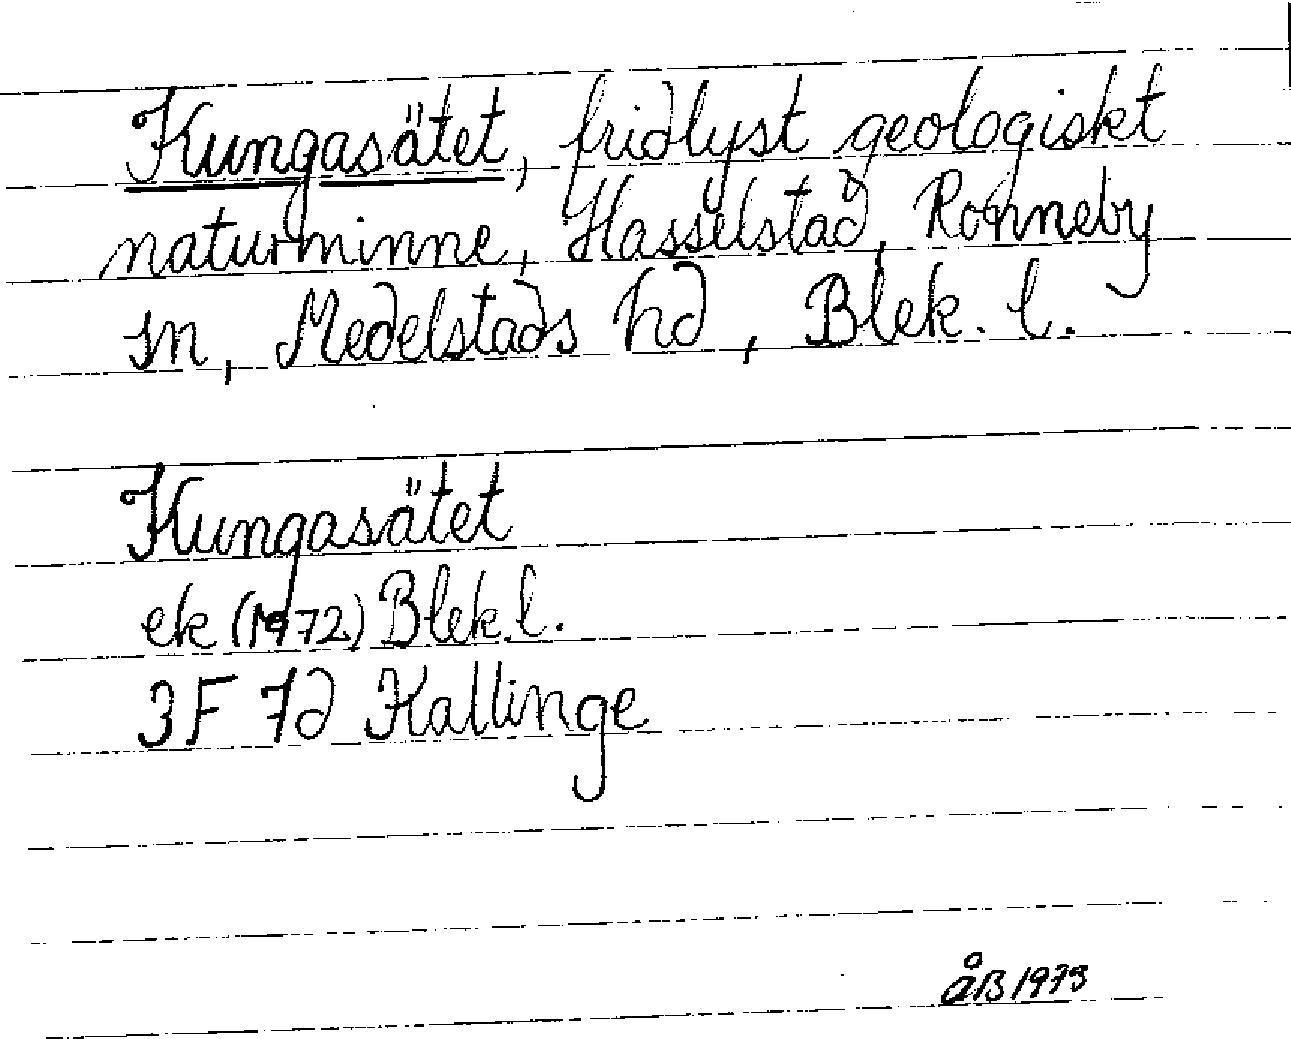 Kungasätet, fridlyst geologiskt
naturminne, Hasselstad, Ronneby
sn, Medelstads hd, Blek. l.
Kungasätet
ek (1972) Blek. l.
3F 7d Kallinge
åB 1973